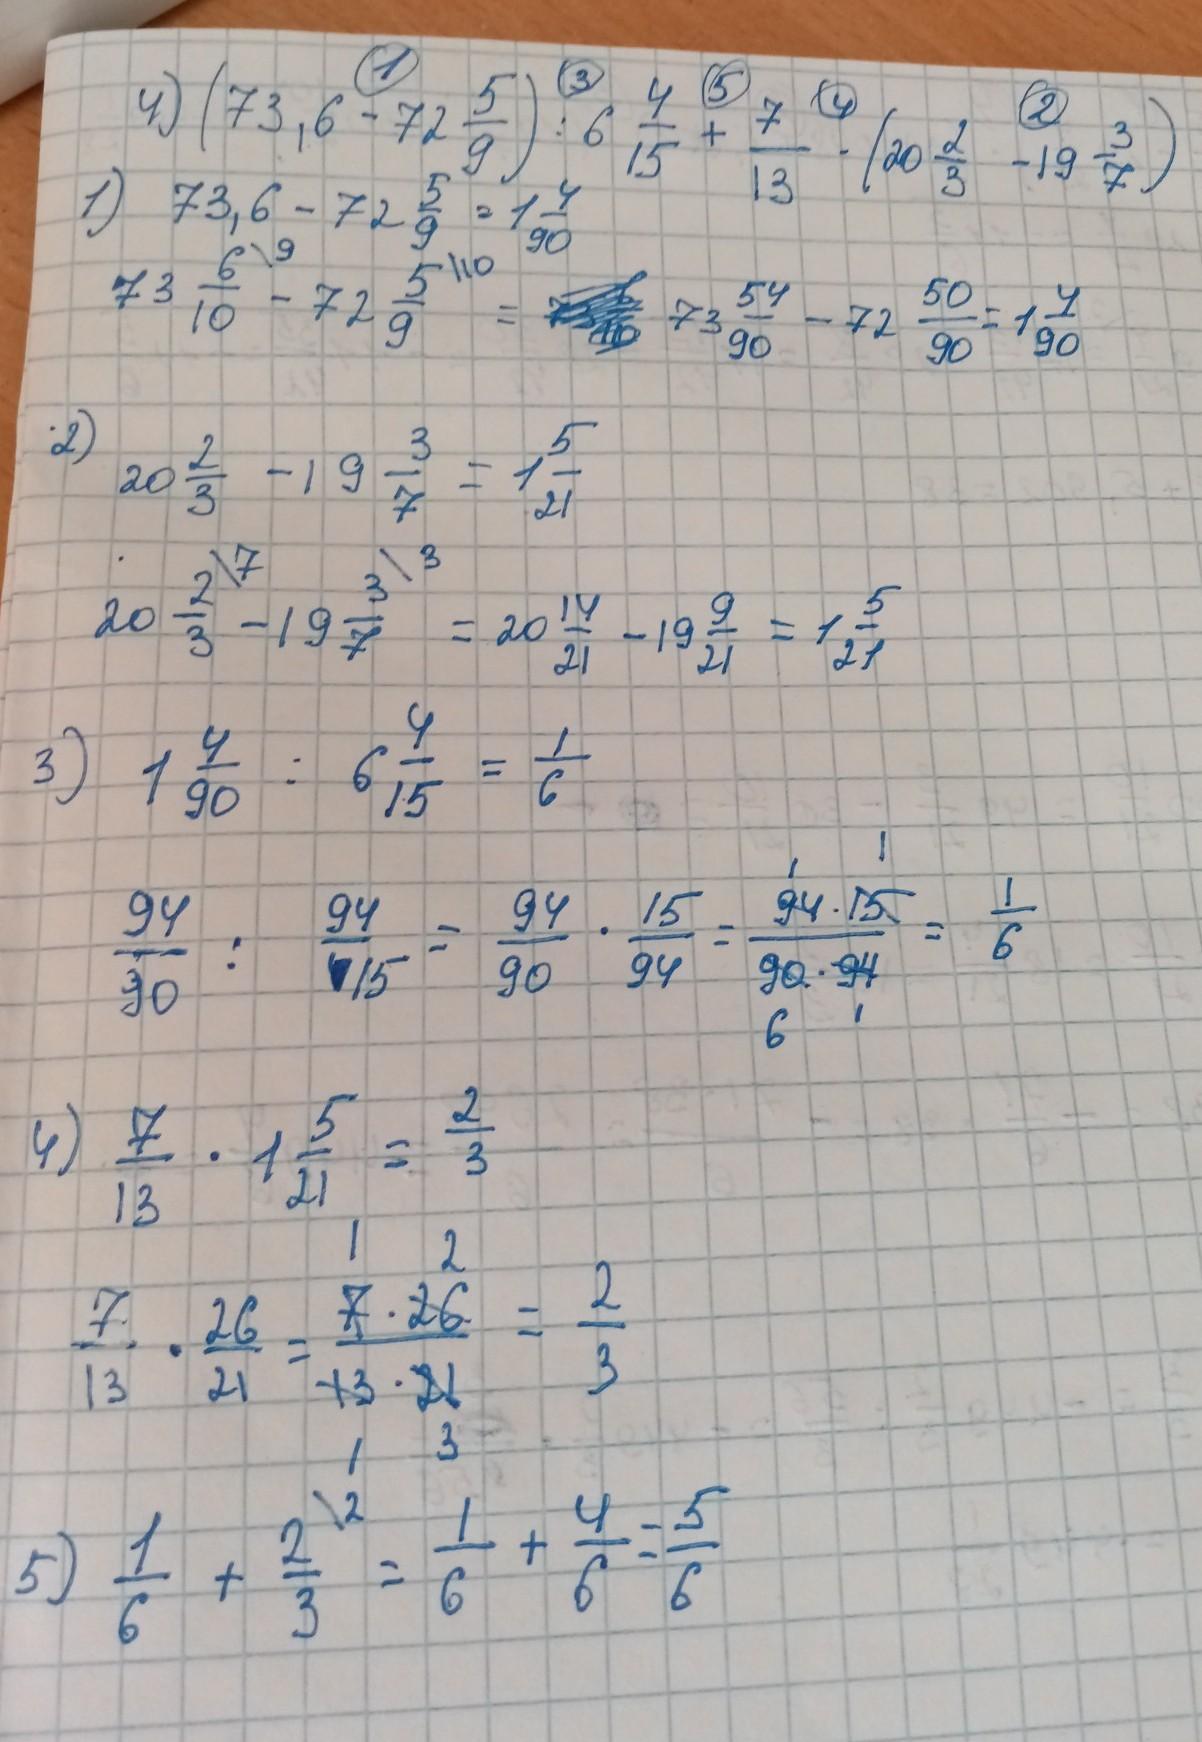 4) (73,6 - 72 5/9) : 6 4/15 + 7/13 · (20 2/3 - 19 3/7)
① ③ ⑤ ④ ②
1) 73,6 - 72 5/9 = 1 4/90
73 6/10 \9 - 72 5/9 \10 = 73 54/90 - 72 50/90 = 1 4/90
2) 20 2/3 - 19 3/7 = 1 5/21
20 2/3 \7 - 19 3/7 \3 = 20 14/21 - 19 9/21 = 1 5/21
3) 1 4/90 : 6 4/15 = 1/6
94/90 : 94/15 = 94/90 · 15/94 = 94 · 15/90 · 94 = 1/6
1 1
6 1
4) 7/13 · 1 5/21 = 2/3
1 2
7/13 · 26/21 = 7 · 26/13 · 21 = 2/3
1 3
5) 1/6 + 2/3 \2 = 1/6 + 4/6 = 5/6